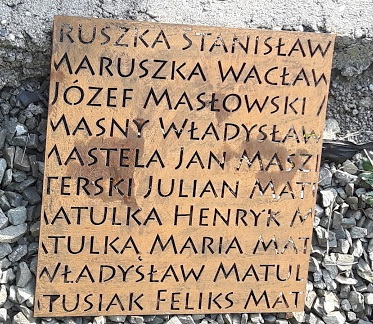 RUSZKA STANISŁAW
MARUSZKA WACŁAW
JÓZEF MASŁOWSKI
MASNY WŁADYSŁAW
MASTELA JAN MASZ
TERSKI JULIAN MAT
MATULKA HENRYK M
ATULKA MARIA MAT
WŁADYSŁAW MATUL
TUSIAK FELIKS MAT